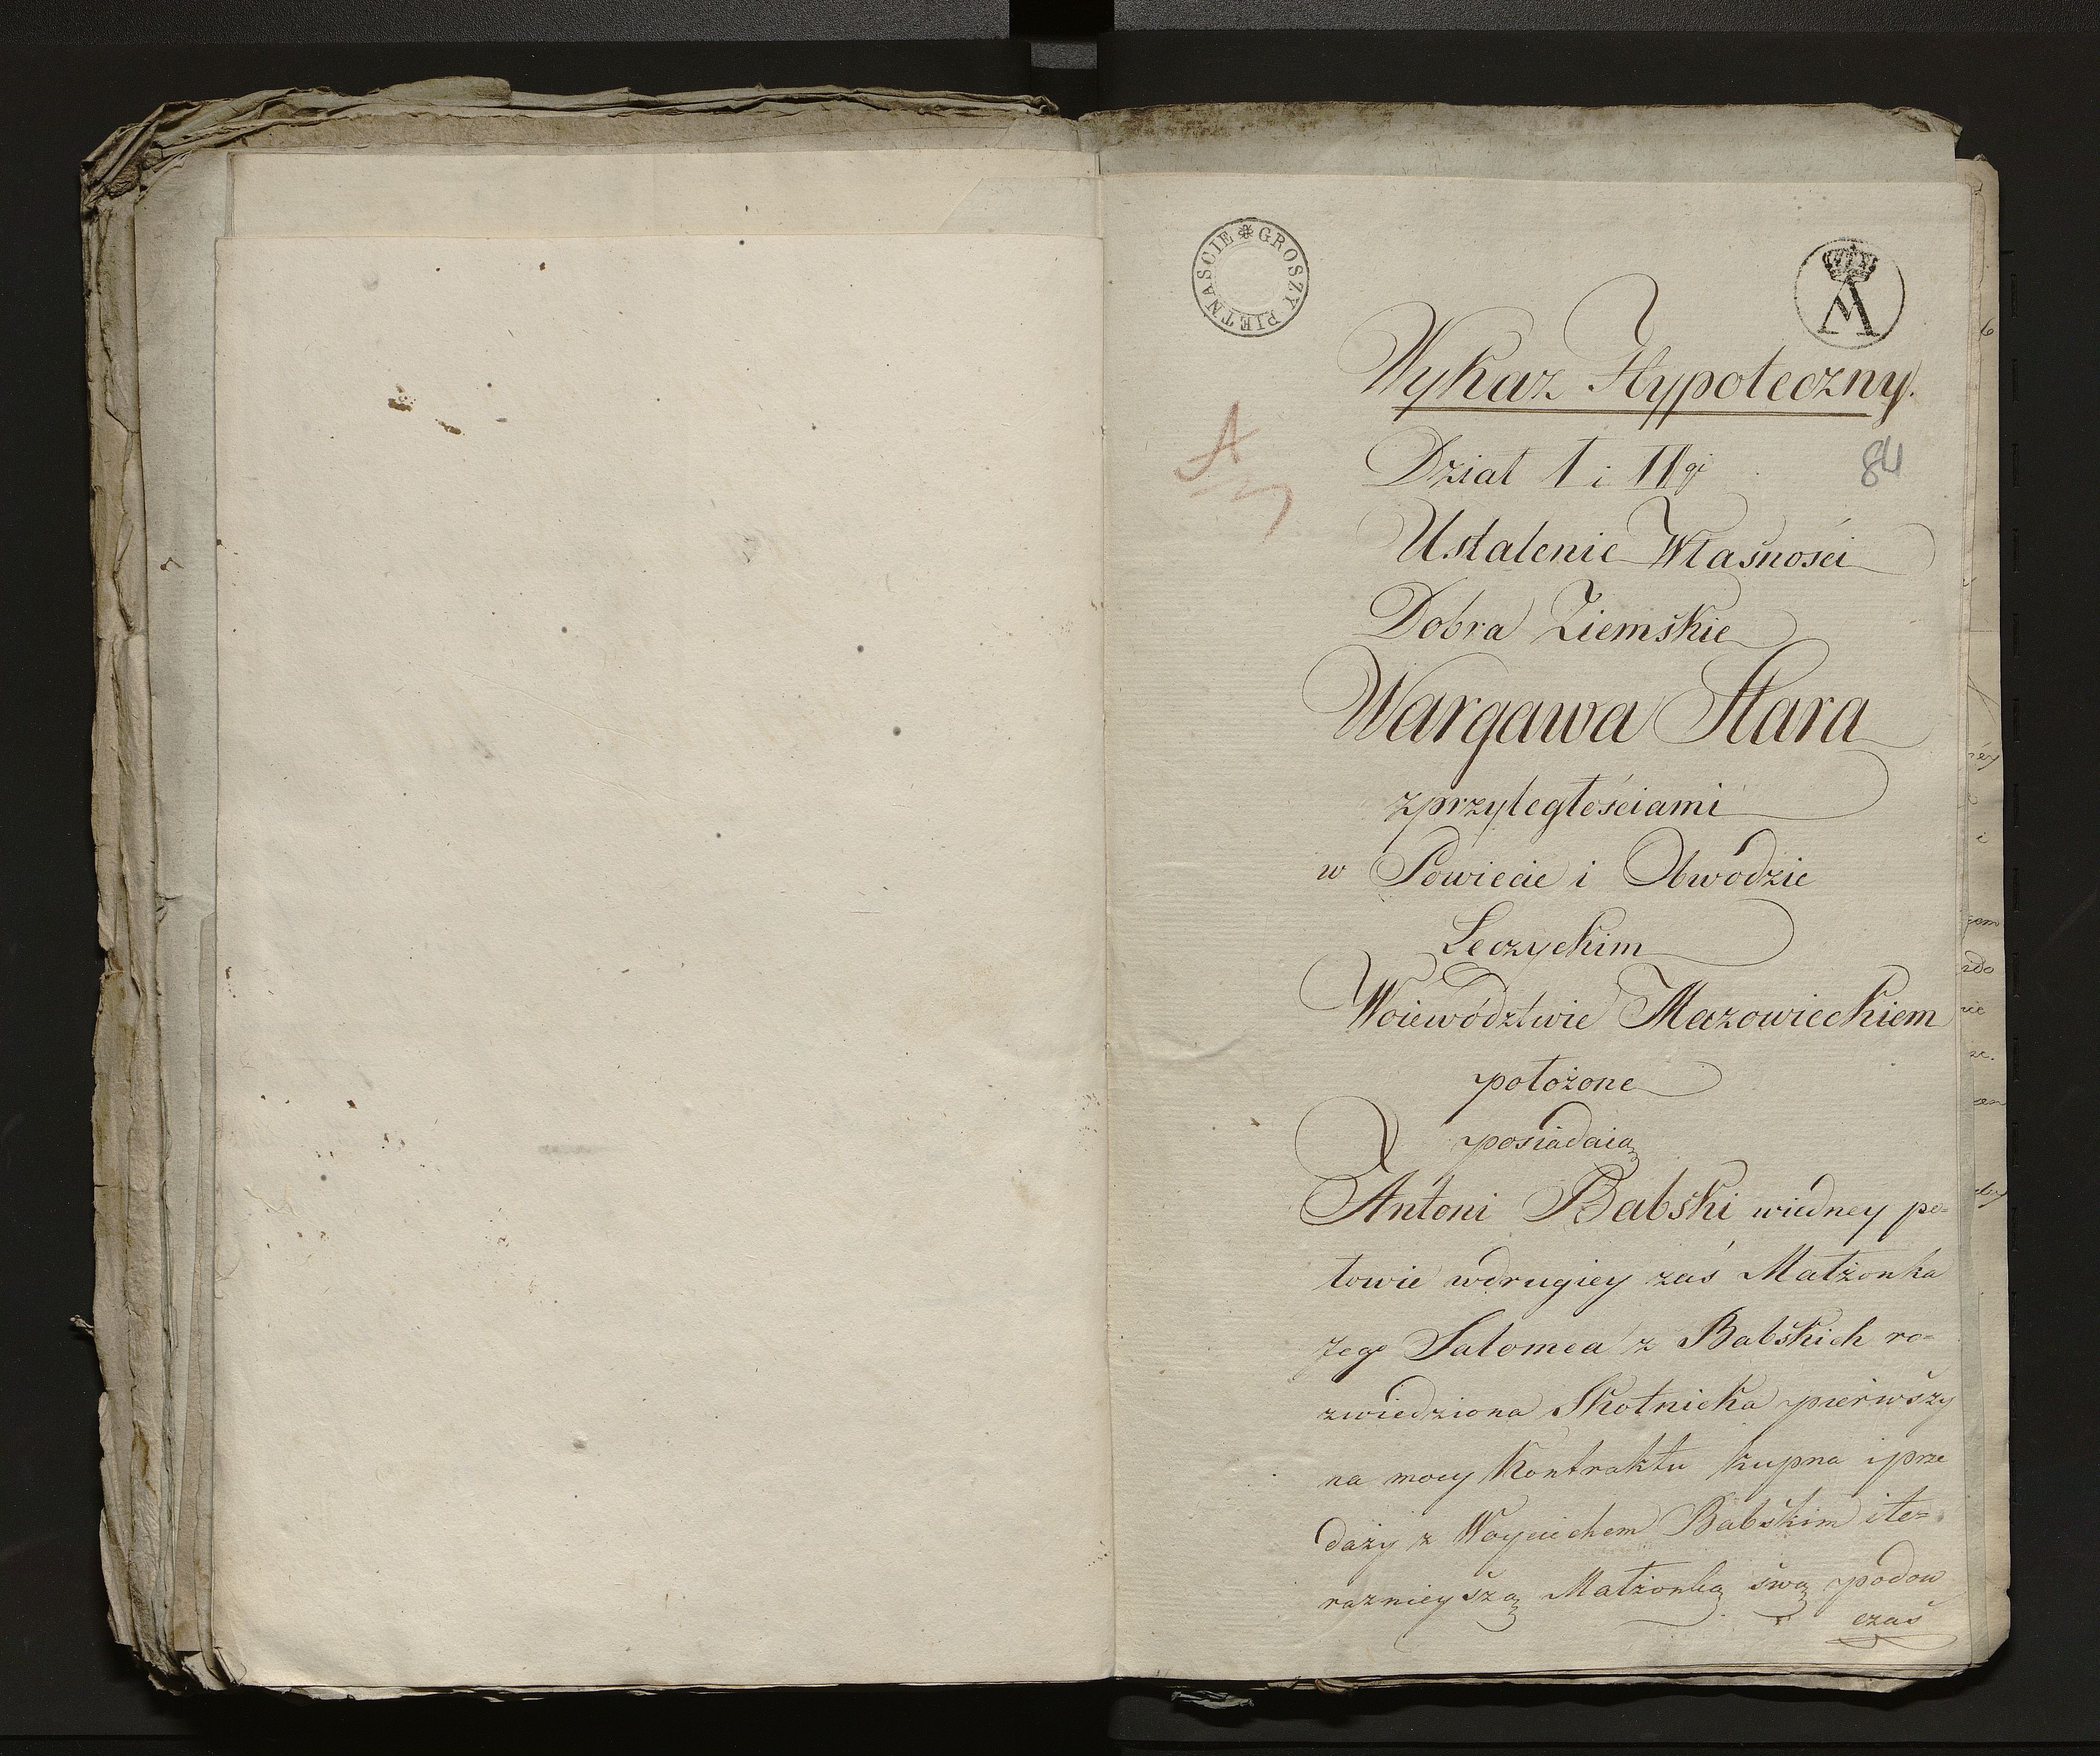 GROSZY PIETNASCIE
Wykaz Hypoteczny.
84
Dział I i IIgi
Ustalenie Własności
Dobra Ziemskie
Wargawa Stara
z przyległościami
w Powiecie i Obwodzie
Łęczyckim
Woiewództwie Mazowieckiem
położone
posiadaią
Antoni Babski wiedney po=
łowie wdrugiey zaś Małżonka
Jego Salomea z Babskich ro=
zwiedziona Skotnicka pierwszy
na mocy Kontraktu kupna i prze
daży z Woyciechem Babskim i te=
raznieyszą Małżonką swą podow
czas